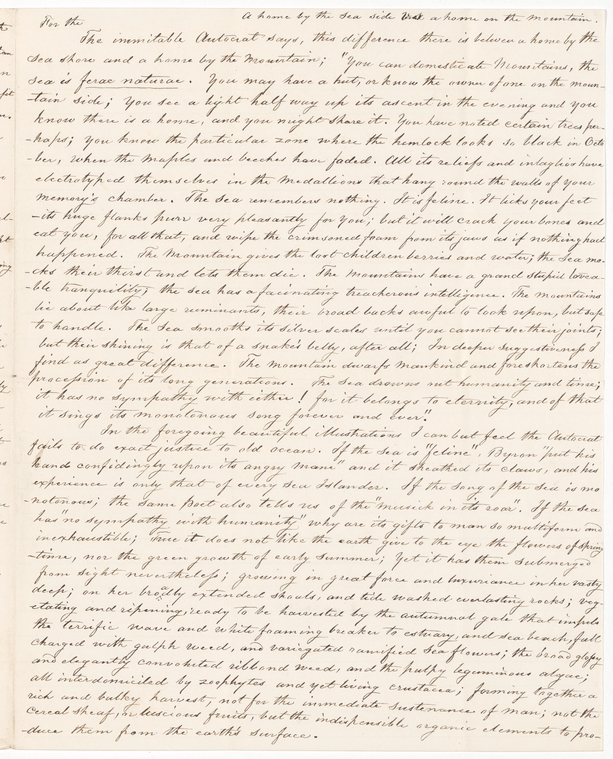 For the A home by the Sea side vrst a home on the Mountain.
The immitable Autocrat says, this difference there is between a home by the
Sea shore and a home by the Mountain; "You can domesticate Mountains, the
sea is ferae naturae. You may have a hut, or know the owner of one on the moun-
-tain side; you see a light half way up its ascent in the evening and you
know there is a home, and you might share it. You have noted certain trees per-
-haps; you know the particular zone where the hemlock looks so black in Octo
ber, when the maples and beeches have faded. All its reliefs and intaglios have
electrotyped themselves in the medallions that hang round the walls of your
memory's chamber. The Sea remembers nothing. It is feline. It licks your feet
-its huge flanks purr very pleasantly for you; but it will crack your bones and
eat you, for all that, and wipe the crimsoned foam from its jaws as if nothing had
happened. The Mountain gives the lost children berries and water; the Sea mo-
cks their thirst and lets them die. The Mountains have a grand stupid lovea-
-ble tranquility; the Sea has a fascinating treacherous intelligence. The Mountains
lie about like large ruminants, their broad backs awful to look upon, but safe
to handle. The Sea smooths its silver scales until you cannot see their joints;
but their shining is that of a snake's belly, after all; In deeper suggestiveness I
find as great difference. The Mountain dwarfs mankind and foreshortens the
procession of its long generations. The Sea drowns out humanity and time;
it has no sympathy with either! for it belongs to eternity, and of that
it sings its monotonous song forever and ever."
In the foregoing beautiful illustrations I can but feel the Autocrat
fails to do exact justice to old ocean. If the Sea is "feline", Byron "put his
hand confidingly upon its angry mane" and it sheathed its claws, and his
experience is only that of every Sea Islander. If the song of the Sea is mo
-notonous; the same Poet also tells us of the "musick in its roar". If the Sea
has "no sympathy with humanity" why are its gifts to man so multiform and
inexhaustible; true it does not like the earth give to the eye the flowers of spring
-time, nor the green growth of early Summer; Yet it has them submerged
from sight nevertheless; growing in great force and luxuriance in her vasty
deep; on her broadly extended shoals, and tide washed everlasting rocks; veg-
etating and ripening; ready to be harvested by the autumnal gale that impels
the terrific wave and white foaming breaker to estuary, and sea beach, full
charged with gulph weed, and variegated ramified Sea flowers; the broad glossy
and elegantly convoluted ribband weed, and the pulpy leguminous algae;
all interdomiciled by zoophytes and yet living crustacea; forming together a
rich and bulky harvest, not for the immediate sustenance of man; not the
Cereal Sheaf, or luscious fruits, but the indispensible organic elements to pro-
-duce them from the earth's surface.